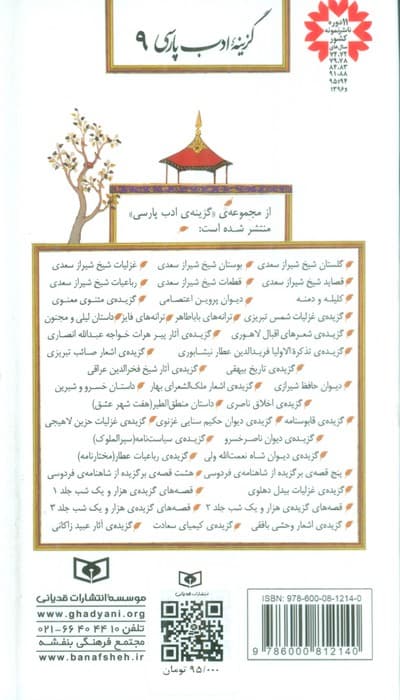 ۱۱ دوره
ناشر نمونه
کشور
سال‌های
۷۴، ۷۲
۷۹، ۷۸
۸۴، ۸۳
۹۱، ۸۸
۹۵، ۹۴
و ۱۳۹۶
گزینهٔ ادب پارسی ۹
از مجموعه‌ی «گزینه‌ی ادب پارسی»
منتشر شده است:
گلستان شیخ شیراز سعدی بوستان شیخ شیراز سعدی غزلیات شیخ شیراز سعدی
قصاید شیخ شیراز سعدی قطعات شیخ شیراز سعدی رباعیات شیخ شیراز سعدی
کلیله و دمنه دیوان پروین اعتصامی گزیده‌ی مثنوی معنوی
گزیده‌ی غزلیات شمس تبریزی ترانه‌های باباطاهر ترانه‌های فایز داستان لیلی و مجنون
گزیده‌ی شعرهای اقبال لاهوری گزیده‌ی آثار پیر هرات خواجه عبدالله انصاری
گزیده‌ی تذکرة‌الاولیا فریدالدین عطار نیشابوری گزیده‌ی اشعار صائب تبریزی
گزیده‌ی تاریخ بیهقی گزیده‌ی آثار شیخ فخرالدین عراقی
دیوان حافظ شیرازی گزیده‌ی اشعار ملک‌الشعرای بهار داستان خسرو و شیرین
گزیده‌ی اخلاق ناصری داستان منطق‌الطیر(هفت شهر عشق)
گزیده‌ی قابوسنامه گزیده‌ی دیوان حکیم سنایی غزنوی گزیده‌ی غزلیات حزین لاهیجی
گزیده‌ی دیوان ناصرخسرو گزیده‌ی سیاست‌نامه(سیرالملوک)
گزیده‌ی دیوان شاه نعمت‌الله ولی گزیده‌ی رباعیات عطار(مختارنامه)
پنج قصه‌ی برگزیده از شاهنامه‌ی فردوسی هشت قصه‌ی برگزیده از شاهنامه‌ی فردوسی
گزیده‌ی غزلیات بیدل دهلوی قصه‌های گزیده‌ی هزار و یک شب جلد ۱
قصه‌های گزیده‌ی هزار و یک شب جلد ۲ قصه‌های گزیده‌ی هزار و یک شب جلد ۳
گزیده‌ی اشعار وحشی بافقی گزیده‌ی کیمیای سعادت گزیده‌ی آثار عبید زاکانی
موسسه انتشارات قدیانی
www.ghadyani.org
تلفن ۱۰ ۴۴ ۴۰ ۶۶-۰۲۱
مجتمع فرهنگی بنفشه
www.banafsheh.ir
انتشارات قدیانی
۹۵/۰۰۰ تومان
ISBN: 978-600-08-1214-0
9 786000 812140